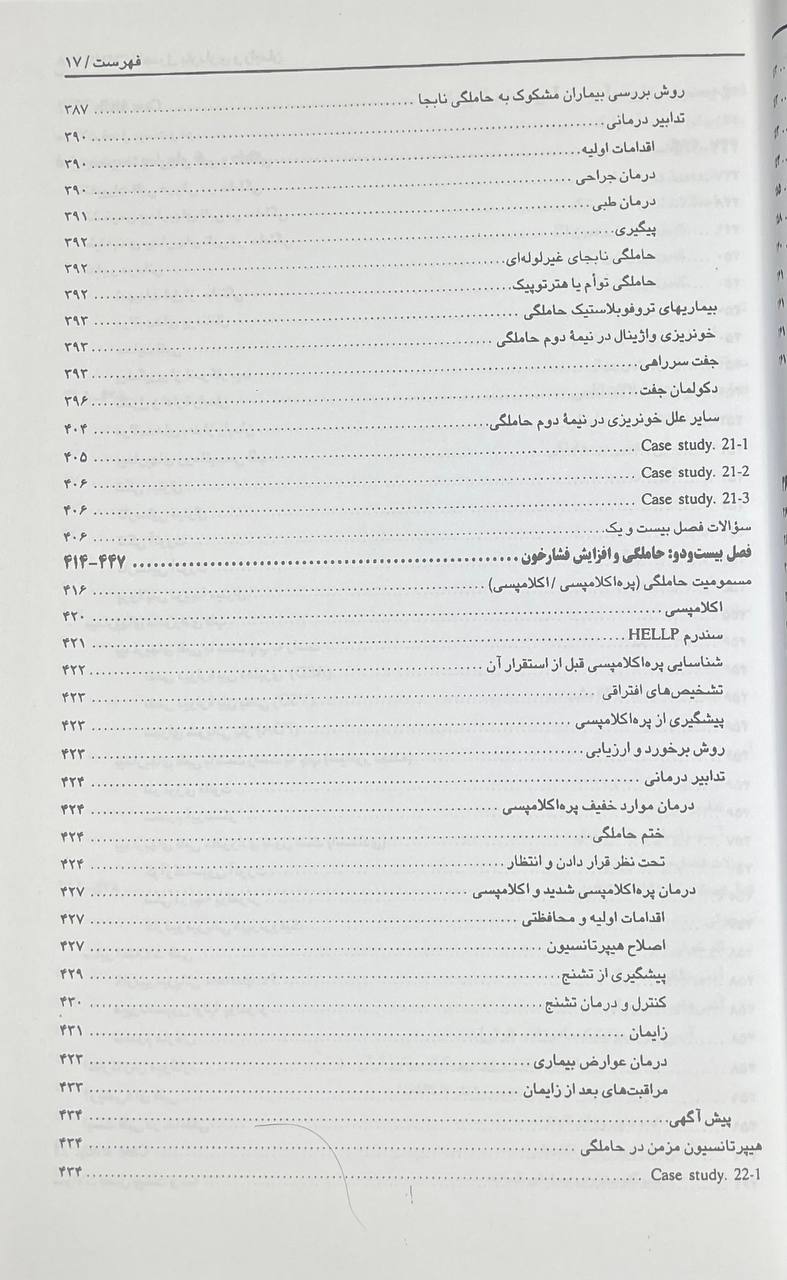 فهرست / ۱۷
روش بررسی بیماران مشکوک به حاملگی نابجا ........ ۳۸۷
تدابیر درمانی ........ ۳۹۰
اقدامات اولیه ........ ۳۹۰
درمان جراحی ........ ۳۹۰
درمان طبی ........ ۳۹۱
پیگیری ........ ۳۹۲
حاملگی نابجای غیرلوله‌ای ........ ۳۹۲
حاملگی توأم یا هتروتوپیک ........ ۳۹۲
بیماریهای تروفوبلاستیک حاملگی ........ ۳۹۳
خونریزی واژینال در نیمهٔ دوم حاملگی ........ ۳۹۳
جفت سرراهی ........ ۳۹۳
دکولمان جفت ........ ۳۹۶
سایر علل خونریزی در نیمهٔ دوم حاملگی ........ ۴۰۴
Case study. 21-1 ........ ۴۰۵
Case study. 21-2 ........ ۴۰۶
Case study. 21-3 ........ ۴۰۶
سؤالات فصل بیست و یک ........ ۴۰۶
فصل بیست‌ودو: حاملگی و افزایش فشارخون ........ ۴۴۷-۴۱۴
مسمومیت حاملگی (پره‌اکلامپسی / اکلامپسی) ........ ۴۱۶
اکلامپسی ........ ۴۲۰
سندرم HELLP ........ ۴۲۱
شناسایی پره‌اکلامپسی قبل از استقرار آن ........ ۴۲۲
تشخیص‌های افتراقی ........ ۴۲۳
پیشگیری از پره‌اکلامپسی ........ ۴۲۳
روش برخورد و ارزیابی ........ ۴۲۳
تدابیر درمانی ........ ۴۲۴
درمان موارد خفیف پره‌اکلامپسی ........ ۴۲۴
ختم حاملگی ........ ۴۲۴
تحت نظر قرار دادن و انتظار ........ ۴۲۴
درمان پره‌اکلامپسی شدید و اکلامپسی ........ ۴۲۷
اقدامات اولیه و محافظتی ........ ۴۲۷
اصلاح هیپرتانسیون ........ ۴۲۷
پیشگیری از تشنج ........ ۴۲۹
کنترل و درمان تشنج ........ ۴۳۰
زایمان ........ ۴۳۱
درمان عوارض بیماری ........ ۴۳۳
مراقبت‌های بعد از زایمان ........ ۴۳۳
پیش آگهی ........ ۴۳۴
هیپرتانسیون مزمن در حاملگی ........ ۴۳۴
Case study. 22-1 ........ ۴۳۴